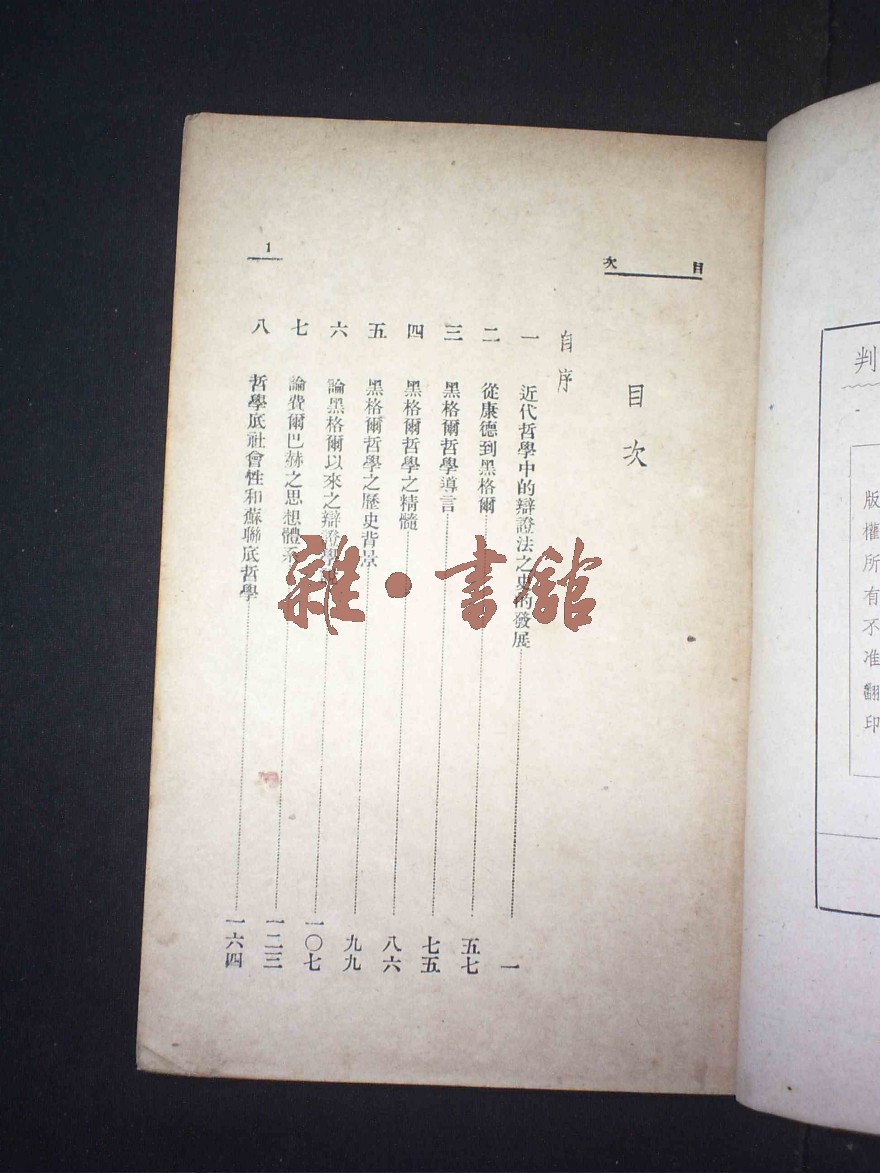 判
版權所有不准翻印
目次
1
目次
自序
一 近代哲學中的辯證法之史的發展 一
二 從康德到黑格爾 五七
三 黑格爾哲學導言 七五
四 黑格爾哲學之精髓 八六
五 黑格爾哲學之歷史背景 九九
六 論黑格爾以來之辯證學 一〇七
七 論費爾巴赫之思想體系 一二三
八 哲學底社會性和蘇聯底哲學 一六四
雜·書館